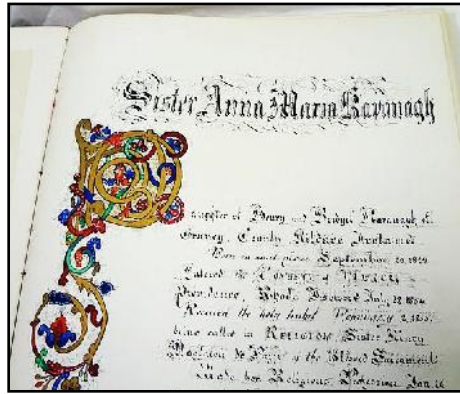 Sister Anna Maria Kavanagh
Daughter of Henry and Kavanagh of
County Kildare Ireland
Born in said place September 20, 1829
Entered the Convent of Mercy
Providence, Rhode Island July 28
Received the holy habit 2, 1855
being called in Religion Sister Mary
of the Blessed Sacrament
Made her Religious Profession Jan. 16